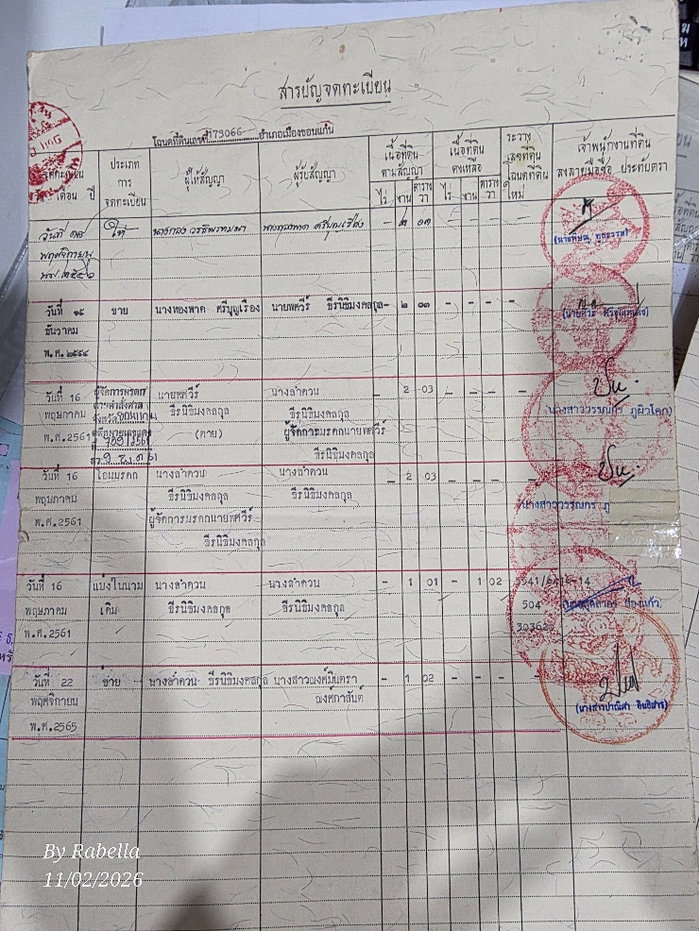 สารบัญจดทะเบียน
โฉนดที่ดินเลขที่ 173066 อำเภอเมืองขอนแก่น
จดทะเบียน
เดือน ปี
ประเภท
การ
จดทะเบียน
ผู้ให้สัญญา
ผู้รับสัญญา
เนื้อที่ดิน
ตามสัญญา
ไร่ งาน ตาราง
วา
เนื้อที่ดิน
คงเหลือ
ไร่ งาน ตาราง
วา
ระวาง
เลขที่ดิน
โฉนดที่ดิน
ใหม่
เจ้าพนักงานที่ดิน
ลงลายมือชื่อ ประทับตรา
วันที่ ๑๘ ให้ - ๒ ๐๓ - - - -
พฤศจิกายน
วันที่ ๑๕ ขาย นางทองพาด ศรีบุญเรือง นายพศวีร์ ธีรนิธิมงคลกุล - ๒ ๐๓ - - - -
ธันวาคม
พ.ศ.๒๕๕๔
วันที่ 16 ผู้จัดการมรดก นายพศวีร์ นางลำดวน - 2 03 - - - -
พฤษภาคม ตามคำสั่งศาล ธีรนิธิมงคลกุล ธีรนิธิมงคลกุล (นางสาววรรณกร ภูผิวโคก)
พ.ศ.2561 (ตาย) ผู้จัดการมรดกนายพศวีร์
ธีรนิธิมงคลกุล
วันที่ 16 โอนมรดก นางลำดวน นางลำดวน - 2 03 - - - -
พฤษภาคม ธีรนิธิมงคลกุล ธีรนิธิมงคลกุล (นางสาววรรณกร ภู
พ.ศ.2561 ผู้จัดการมรดกนายพศวีร์
ธีรนิธิมงคลกุล
วันที่ 16 แบ่งในนาม นางลำดวน นางลำดวน - 1 01 - 1 02
พฤษภาคม เดิม ธีรนิธิมงคลกุล ธีรนิธิมงคลกุล 504
พ.ศ.2561
วันที่ 22 ขาย นางลำดวน ธีรนิธิมงคลกุล - 1 02 - - - -
พฤศจิกายน
พ.ศ.2565
By Rabella
11/02/2026